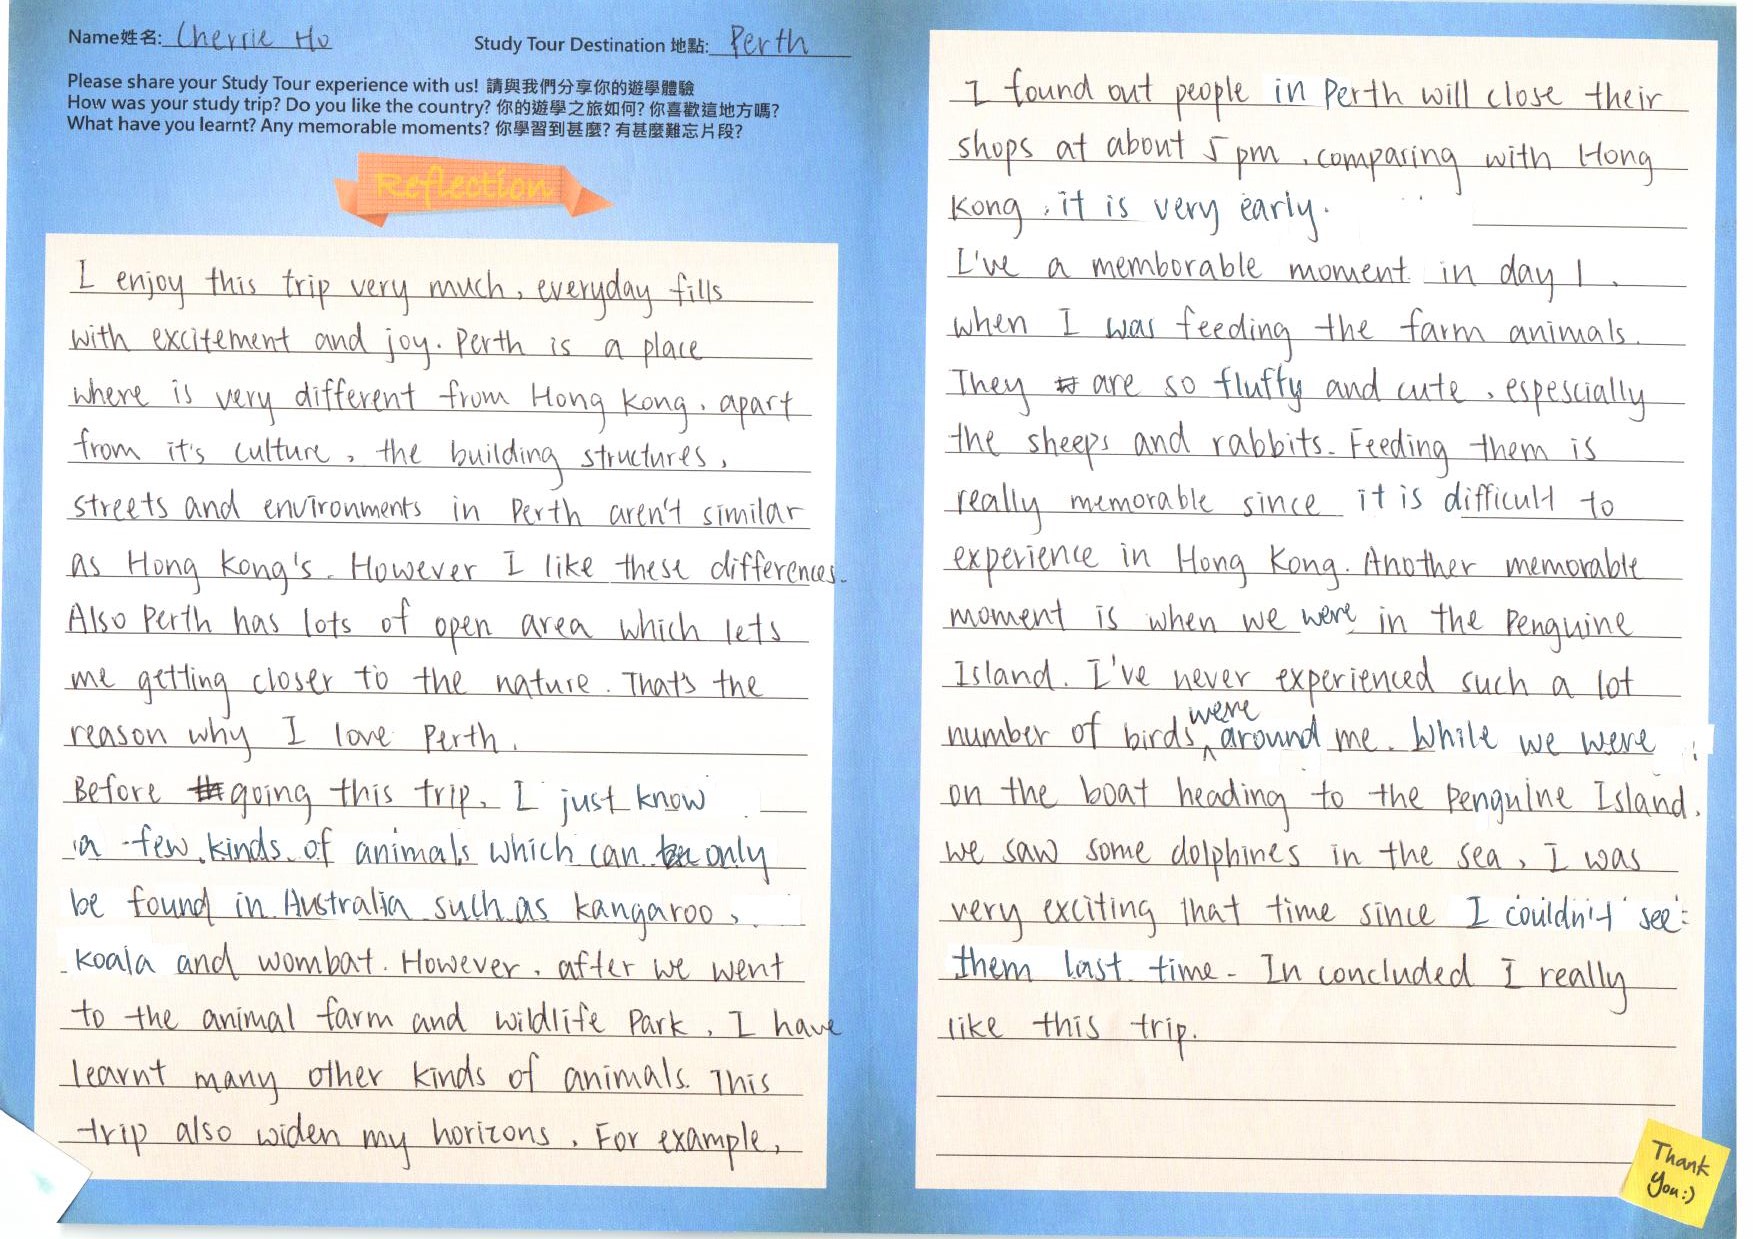 Name姓名: Cherrie Ho
Study Tour Destination 地點: Perth
Please share your Study Tour experience with us! 請與我們分享你的遊學體驗
How was your study trip? Do you like the country? 你的遊學之旅如何? 你喜歡這地方嗎?
What have you learnt? Any memorable moments? 你學習到甚麼? 有甚麼難忘片段?
Reflection
I enjoy this trip very much, everyday fills
with excitement and joy. Perth is a place
where is very different from Hong Kong, apart
from it's culture, the building structures,
streets and environments in Perth aren't similar
as Hong Kong's. However I like these differences.
Also Perth has lots of open area which lets
me getting closer to the nature. That's the
reason why I love Perth.
Before going this trip, I just know
a few kinds of animals which can only
be found in Australia such as kangaroo,
koala and wombat. However, after we went
to the animal farm and wildlife Park, I have
learnt many other kinds of animals. This
trip also widen my horizons. For example,
I found out people in Perth will close their
shops at about 5 pm, comparing with Hong
Kong, it is very early.
I've a memborable moment in day 1,
when I was feeding the farm animals.
They are so fluffy and cute, espescially
the sheeps and rabbits. Feeding them is
really memorable since it is difficult to
experience in Hong Kong. Another memorable
moment is when we were in the Penguine
Island. I've never experienced such a lot
number of birds were around me. While we were
on the boat heading to the Penguine Island,
we saw some dolphines in the sea, I was
very exciting that time since I couldn't see
them last time. In concluded I really
like this trip.
Thank
You:)